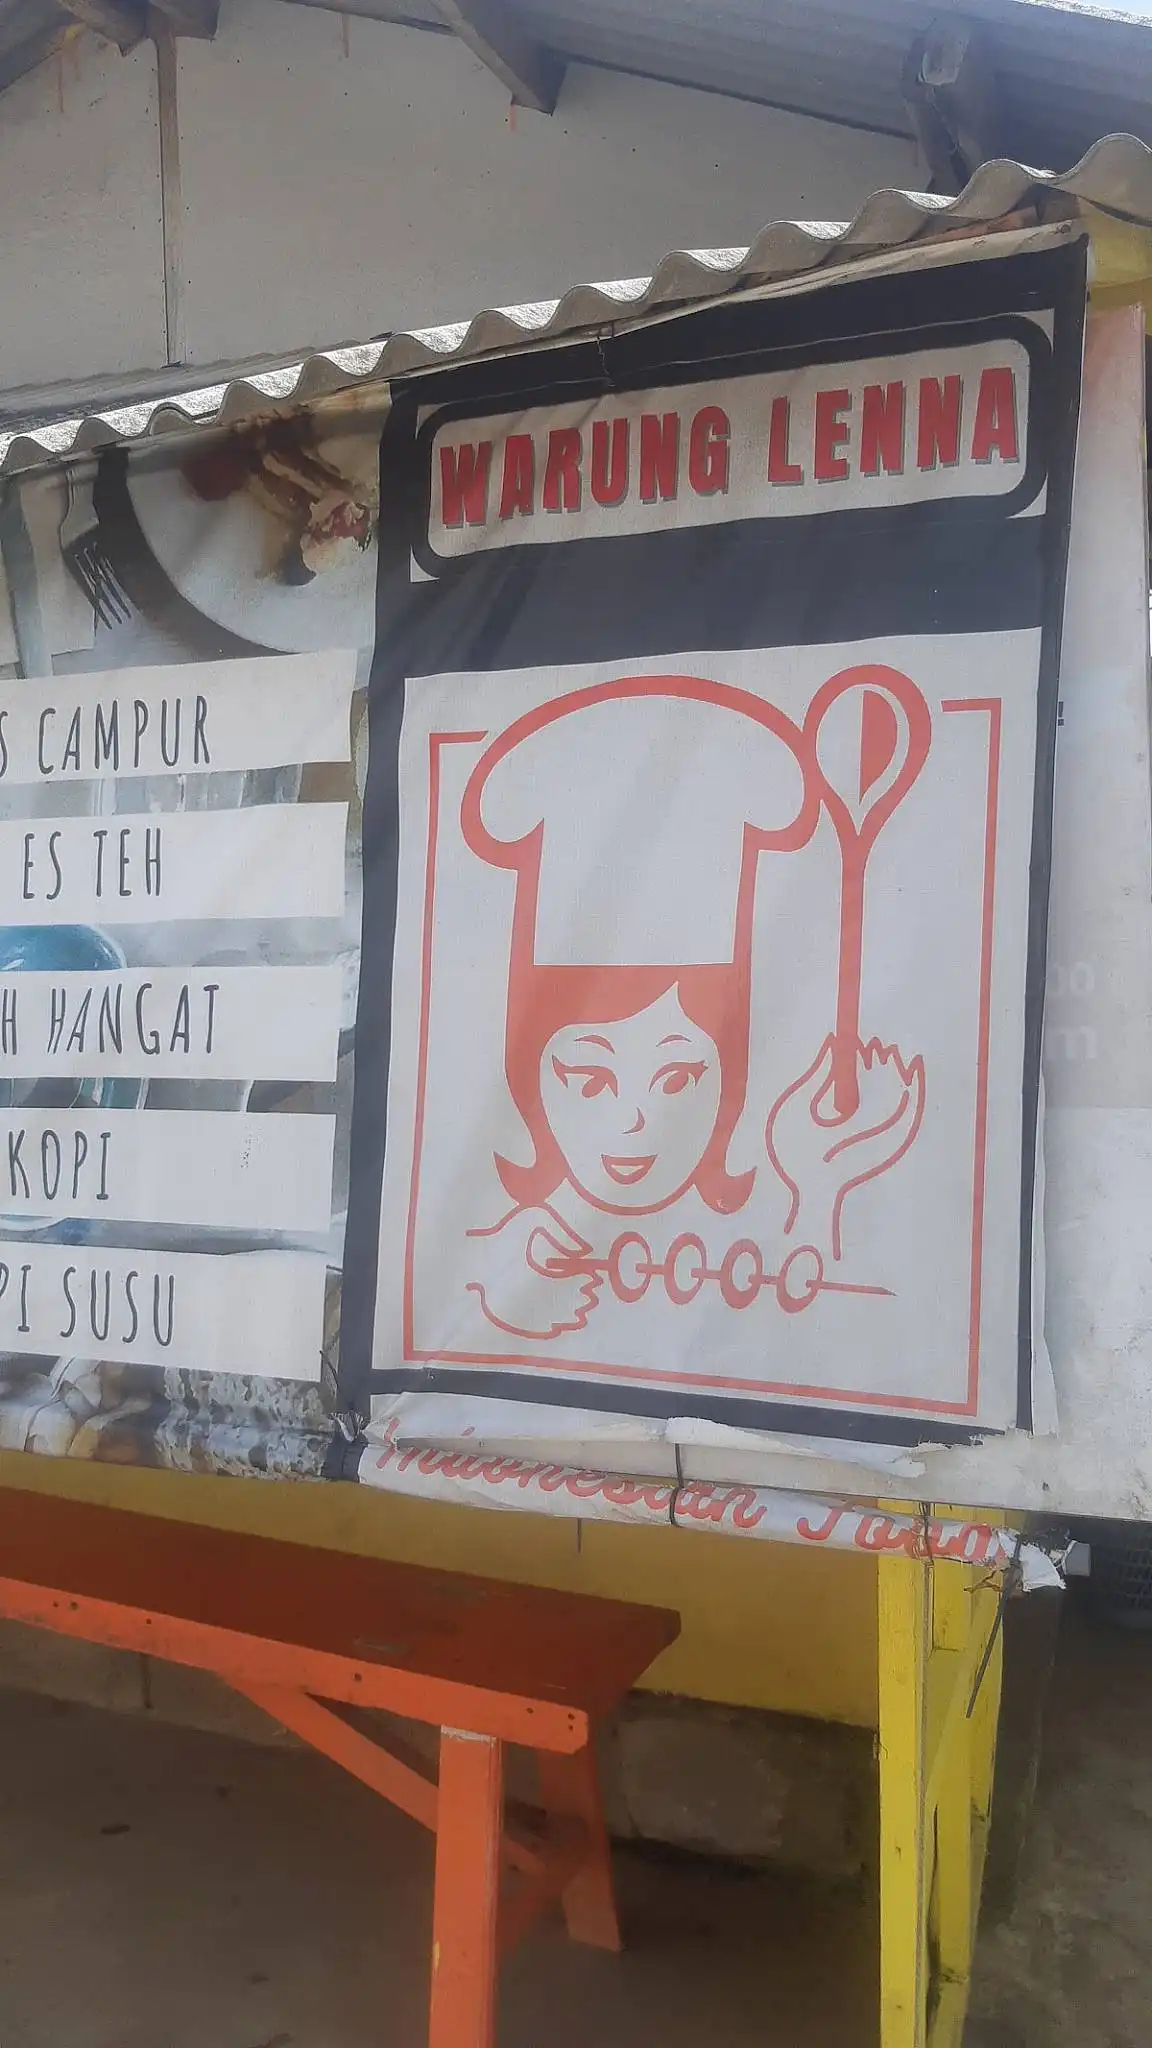 WARUNG LENNA
S CAMPUR
ES TEH
H HANGAT
KOPI
PI SUSU
Indonesian